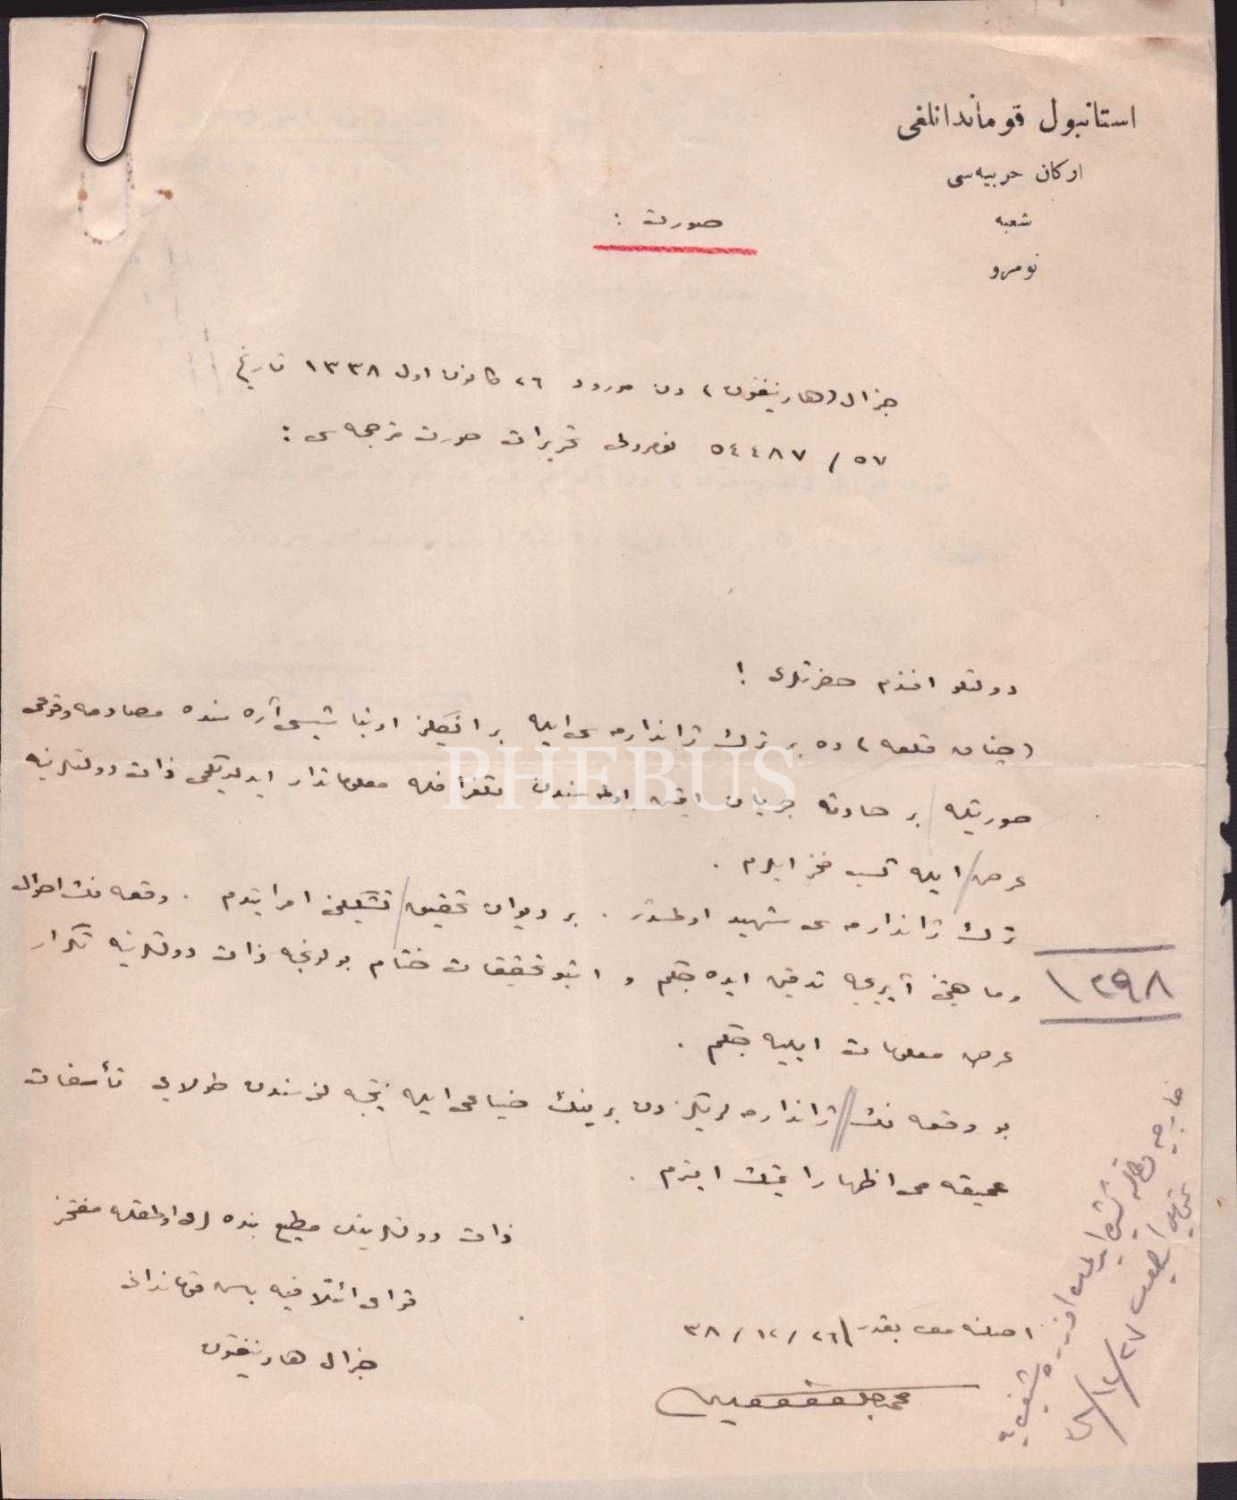 استانبول قوماندانلغی
اركان حربیه‌سی
شعبه
نومرو
صورت :
جنرال (هارینغتون) دن مورود ٢٦ كانون اول ١٣٣٨ تاریخ
٥٤٤٨٧ / ٥٧ نومرولی تحریرات صورت ترجمه‌سی :
دولتلو افندم حضرتلری !
(چناق قلعه) ده بر ترك ژاندارمه‌سی ایله بر انگلیز آره‌سنده مصادمه وقوعی
صورتیله بر حادثه جریان ایتمش اولمسندن تلغرافله معلوماتدار ایدلدیكمی ذات دولتلرینه
عرض ایله كسب فخر ایلرم .
ترك ژاندارمه‌سی شهید اولمشدر . بر دیوان تحقیق تشكیلنی امر ایتدم . وقعه‌نك احوال
وماهیتنی آیریجه تدقیق ایده‌جكم و اشبو تحقیقات ختام بولونجه ذات دولتلرینه تكرار
عرض معلومات ایلیه‌جكم .
بو وقعه‌نك ژاندارمه‌لریكزدن برینك ضیاعی ایله نتیجه‌لنمسندن طولایی تأسفات
عمیقه‌می اظهار ایتمك ایسترم .
ذات دولتلرینك مطیع بنده‌لری اولمقله مفتخر
قوای ائتلافیه باش قوماندانی
جنرال هارینغتون
اصلنه مطابقدر ٢٦/١٢/٣٨
١٢٩٨
٢٧/١٢/٣٨
PHEBUS